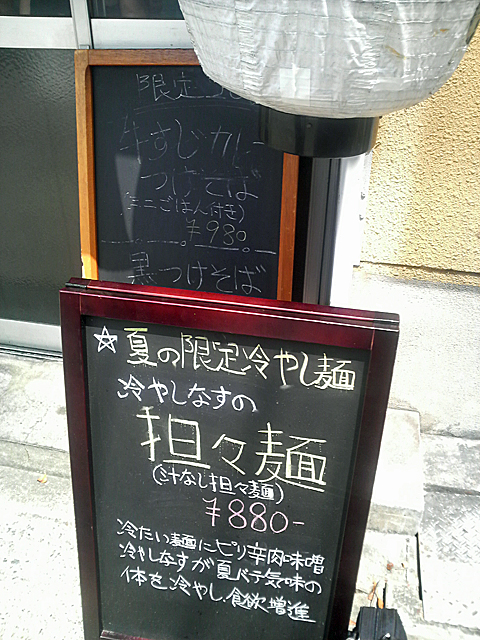 限定
牛すじカレー
つけそば
(ミニごはん付き)
¥980
黒つけそば
☆夏の限定冷やし麺
冷やしなすの
担々麺
(汁なし担々麺)
¥880-
冷たい麺にピリ辛肉味噌
冷やしなすが夏バテ気味の
体を冷やし食欲増進